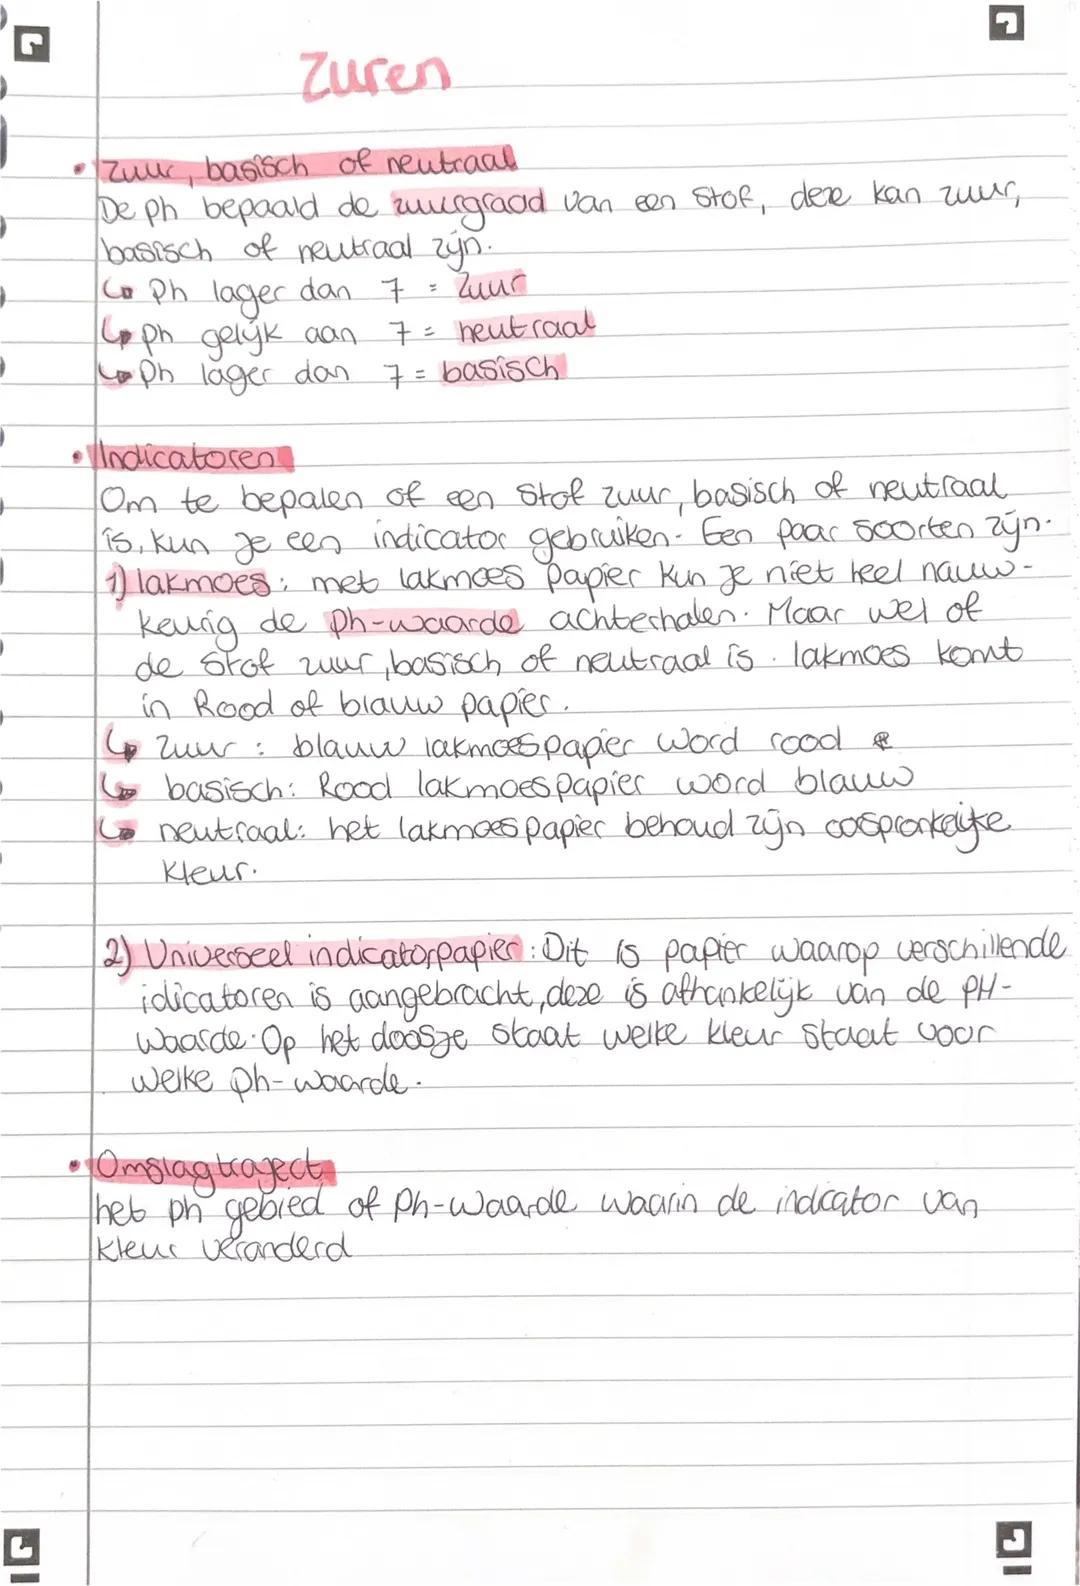 Zuren
• Zuur, basisch of neutraal
De ph bepaald de zuurgraad van een stof, deze kan zuur,
basisch of neutraal zijn.
↳ Ph lager dan 7 = Zuur
↳ ph gelijk aan 7 = neutraal
↳ Ph lager dan 7 = basisch
• Indicatoren
Om te bepalen of een stof zuur, basisch of neutraal
is, kun je een indicator gebruiken. Een paar soorten zijn.
1) lakmoes: met lakmoes papier kun je niet heel nauw-
keurig de Ph-waarde achterhalen. Maar wel of
de stof zuur, basisch of neutraal is. lakmoes komt
in Rood of blauw papier.
↳ zuur: blauw lakmoespapier word rood
↳ basisch: Rood lakmoespapier word blauw
↳ neutraal: het lakmoespapier behoud zijn oospronkelijke
kleur.
2) Universeel indicatorpapier: Dit is papier waarop verschillende
idicatoren is aangebracht, deze is afhankelijk van de pH-
waarde. Op het doosje staat welke kleur staat voor
welke ph-waarde.
• Omslagtraject
het ph gebied of Ph-waarde waarin de indicator van
kleur veranderd